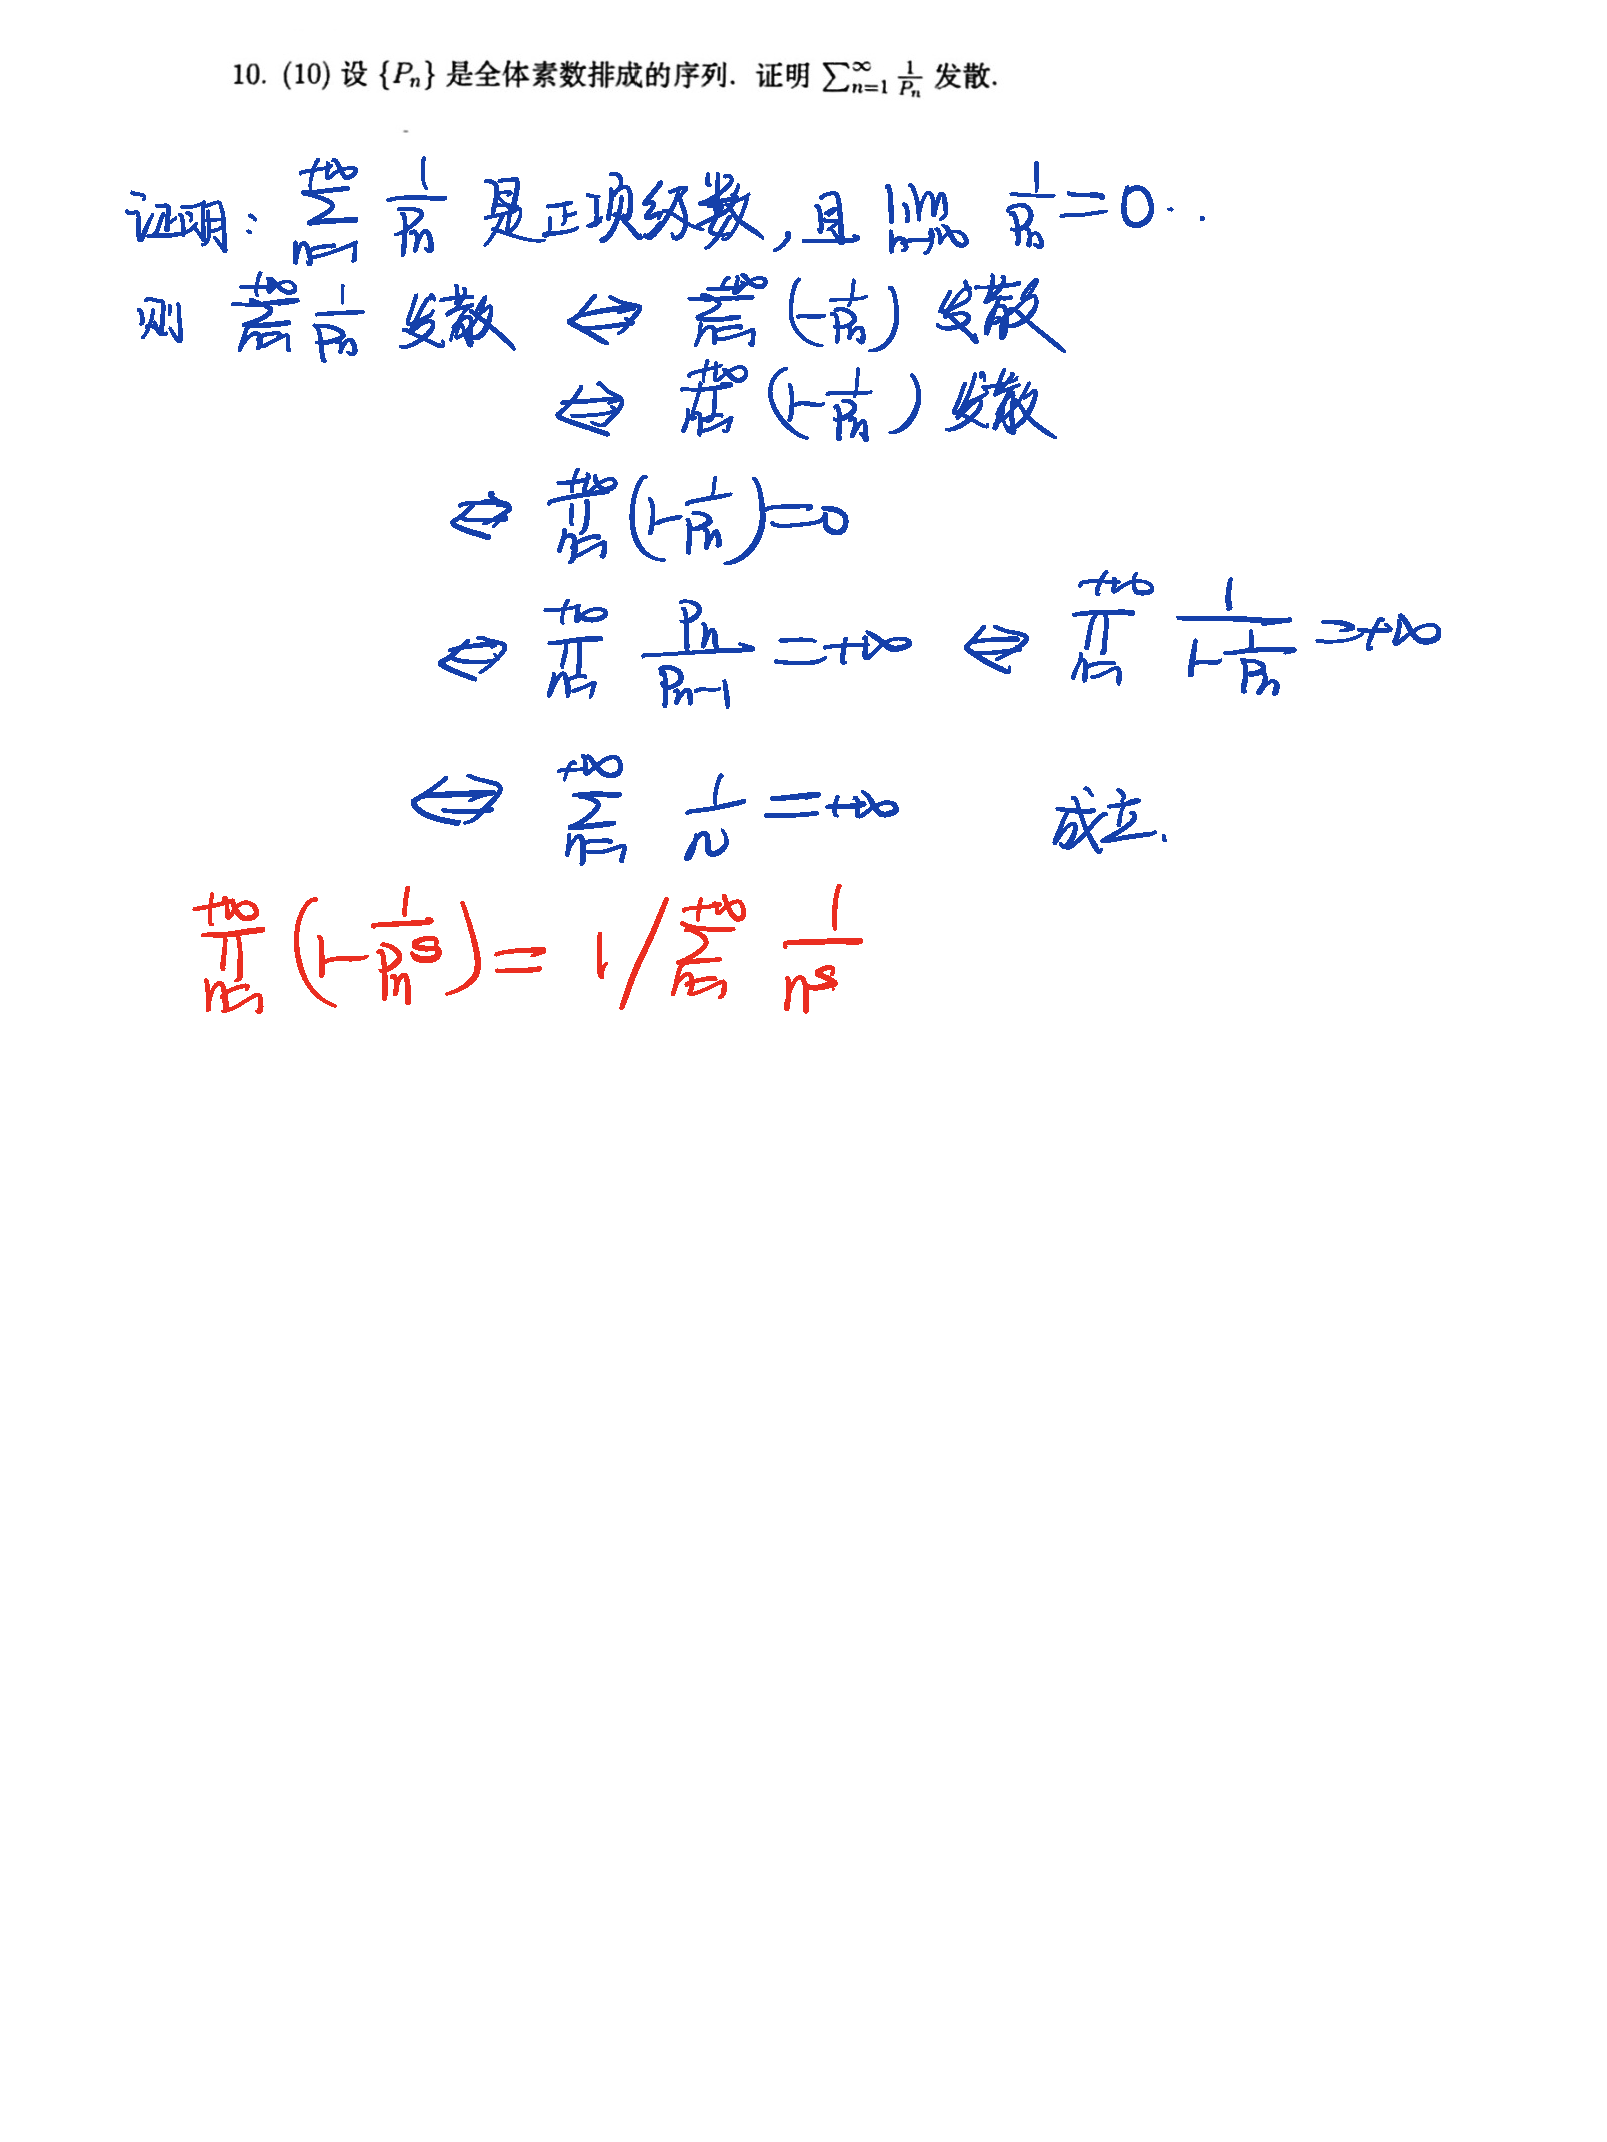 10. (10) 设 {Pₙ} 是全体素数排成的序列. 证明 ∑ₙ₌₁^∞ 1/Pₙ 发散.
证明: ∑ₙ₌₁^{+∞} 1/Pₙ 是正项级数, 且 lim_{n→∞} 1/Pₙ = 0..
则 ∑ₙ₌₁^{+∞} 1/Pₙ 发散 ⇔ ∑ₙ₌₁^{+∞} (-1/Pₙ) 发散
⇔ ∏ₙ₌₁^{+∞} (1-1/Pₙ) 发散
⇔ ∏ₙ₌₁^{+∞} (1-1/Pₙ) = 0
⇔ ∏ₙ₌₁^{+∞} Pₙ/(Pₙ-1) = +∞ ⇔ ∏ₙ₌₁^{+∞} 1/(1-1/Pₙ) = +∞
⇔ ∑ₙ₌₁^{+∞} 1/n = +∞ 成立.
∏ₙ₌₁^{+∞} (1-1/Pₙ^s) = 1/∑ₙ₌₁^{+∞} 1/n^s